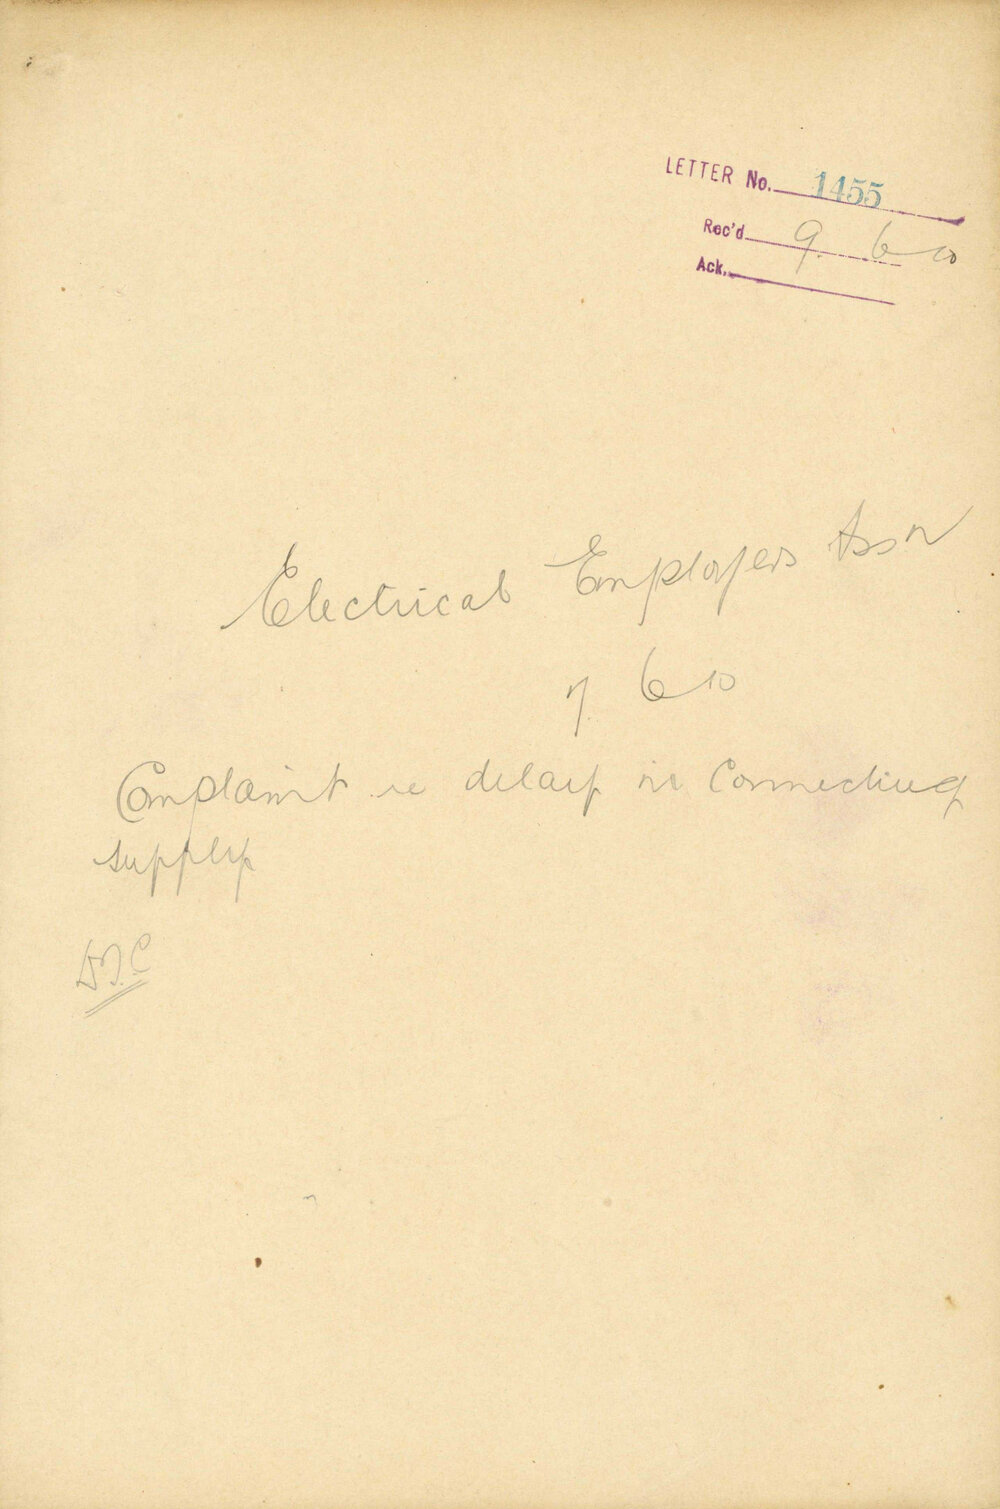 LETTER No. 1455
Rec'd 9. 6 10
Ack.
Electrical Employers Assn
7. 6 10
Complaint re delay in Connecting
supply